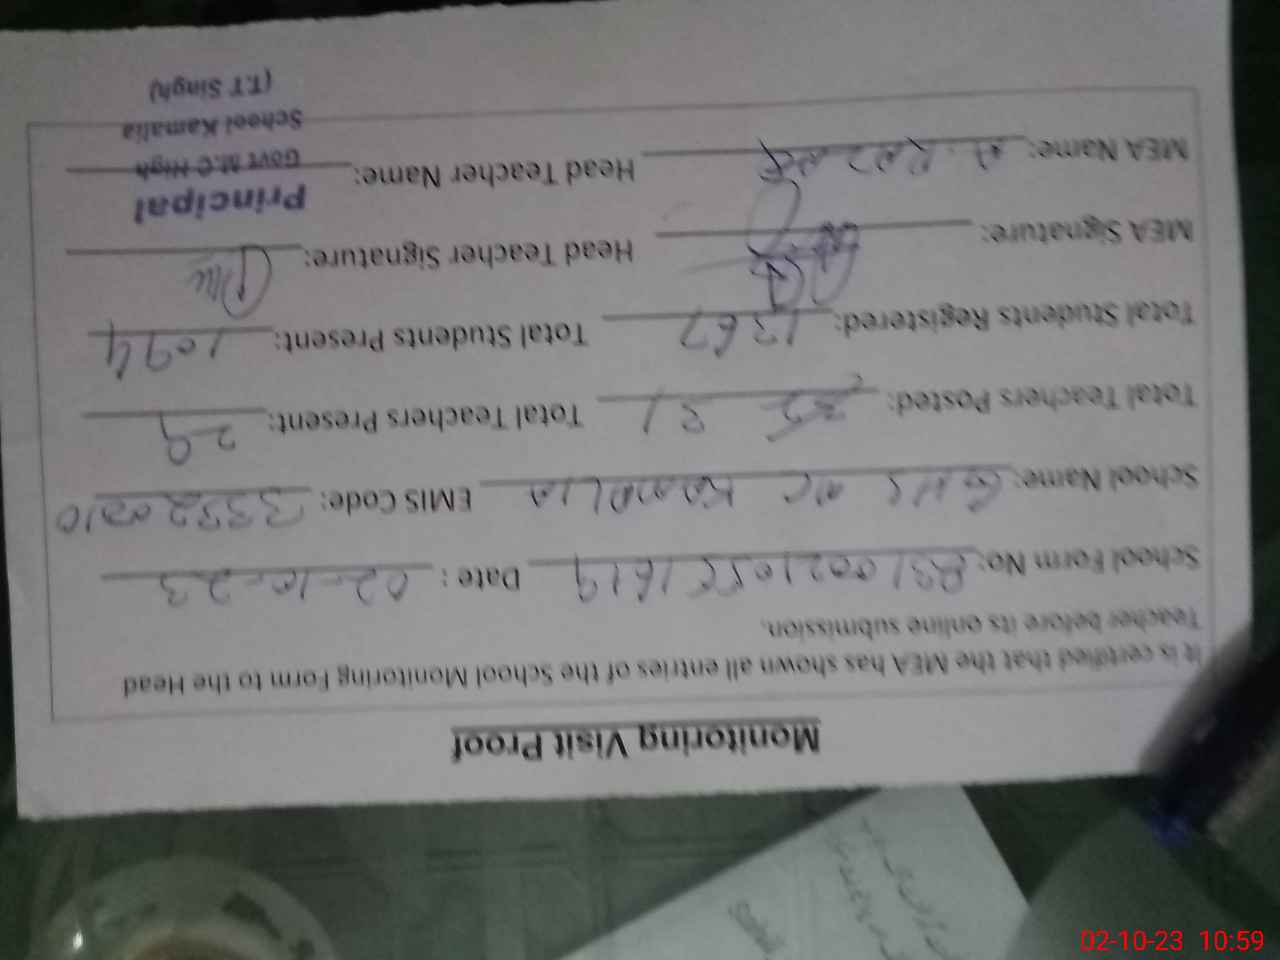 Monitoring Visit Proof
It is certified that the MEA has shown all entries of the School Monitoring Form to the Head
Teacher before its online submission.
School Form No: Date: 02-10-23
School Name: GHS MC KAMALIA EMIS Code: 33320010
Total Teachers Posted: 31 Total Teachers Present: 29
Total Students Registered: 1367 Total Students Present: 1094
MEA Signature: Head Teacher Signature:
MEA Name: Head Teacher Name:
Principal
Govt M.C High
School Kamalia
(T.T Singh)
02-10-23 10:59